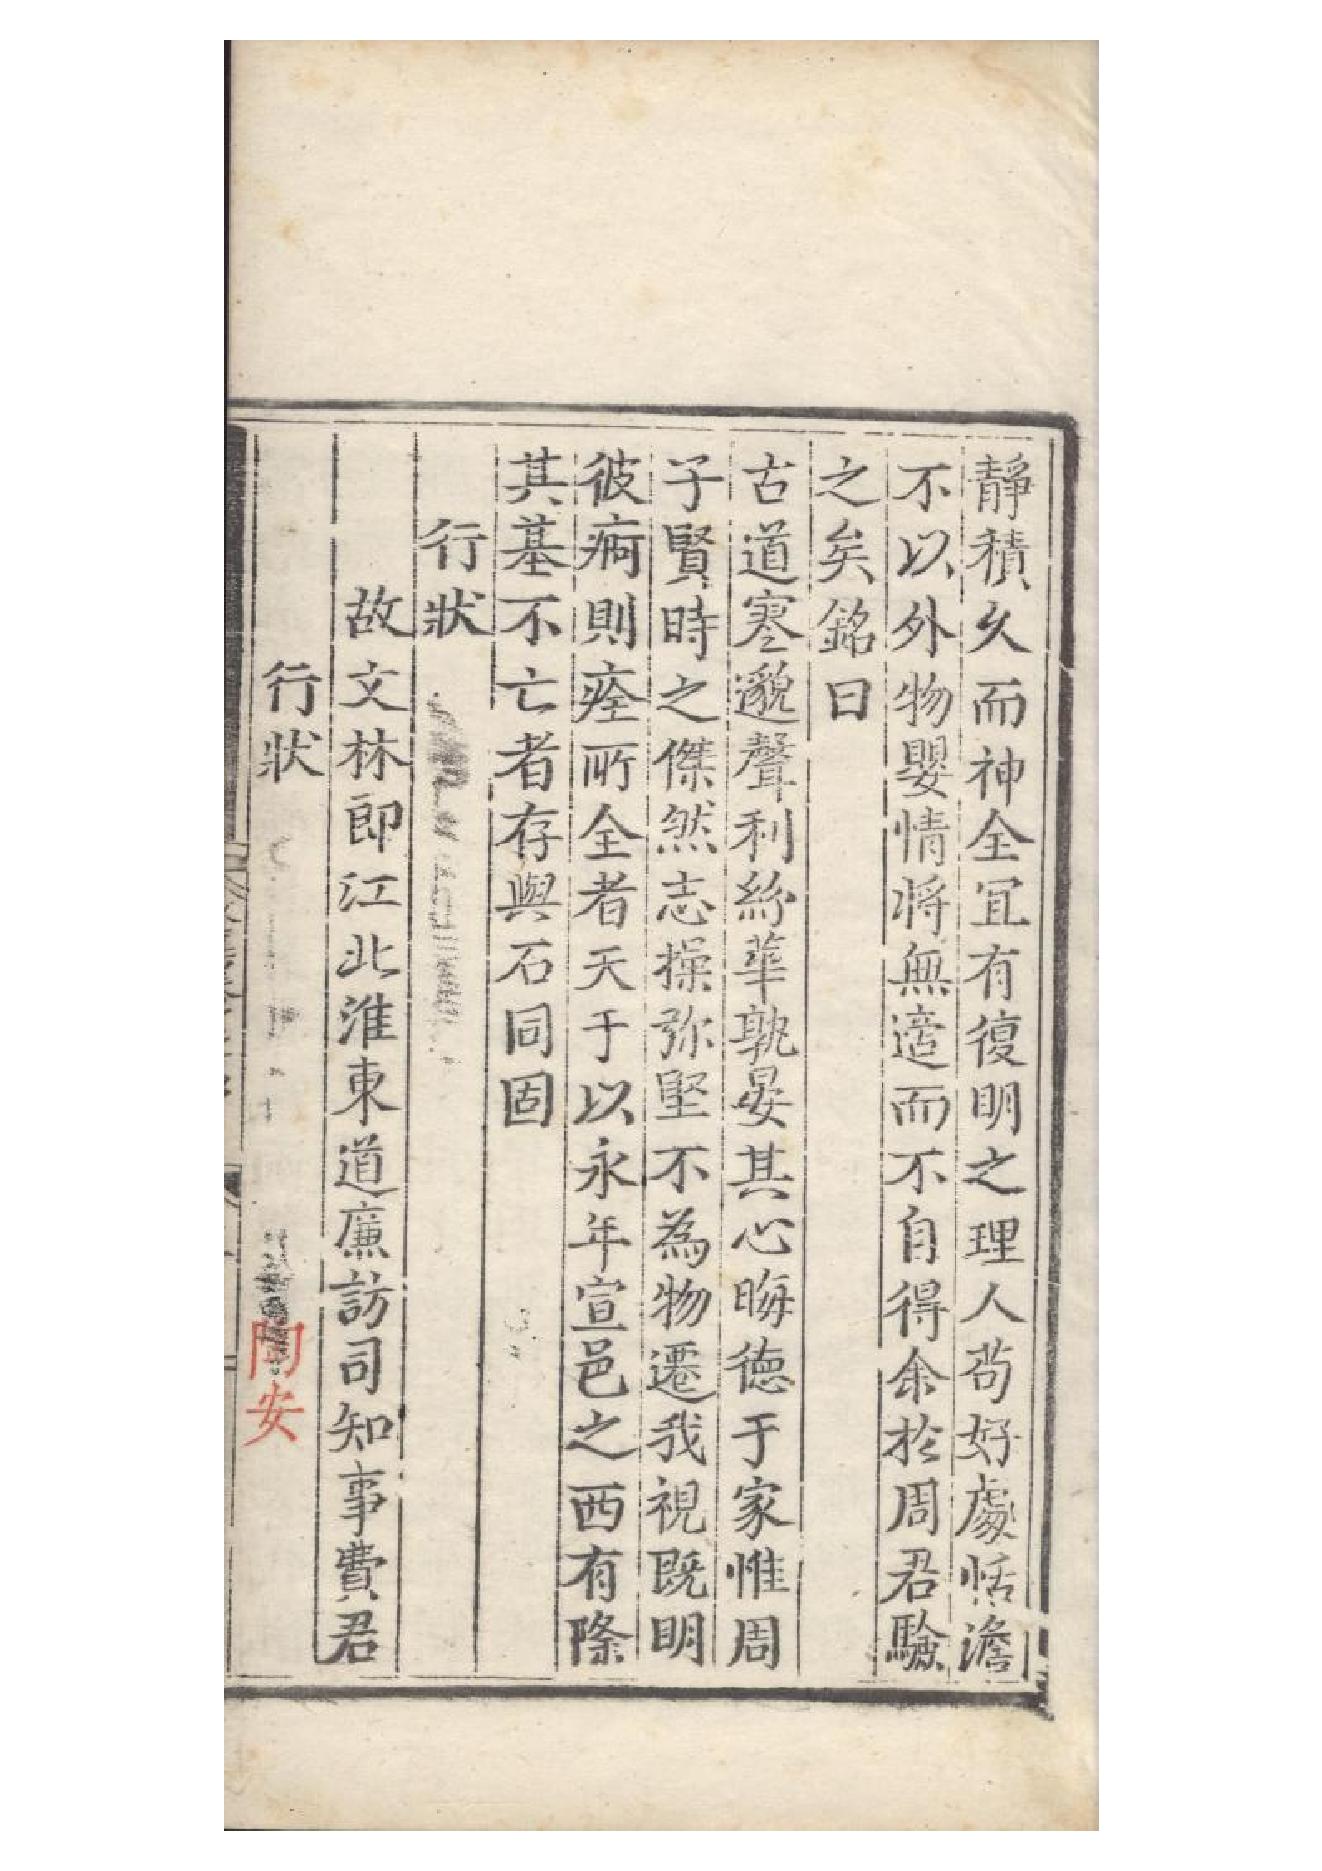 靜積久而神全冝有復明之理人苟好處恬澹
不以外物嬰情將無適而不自得余於周君驗
之矣銘曰
古道寥邈聲利紛華孰晏其心晦德于家惟周
子賢時之傑然志操弥堅不為物遷我視既明
彼痾則痊所全者天于以永年宣邑之西有隂
其墓不亡者存與石同固
行狀
故文林郎江北淮東道廉訪司知事費君
行狀
陶安